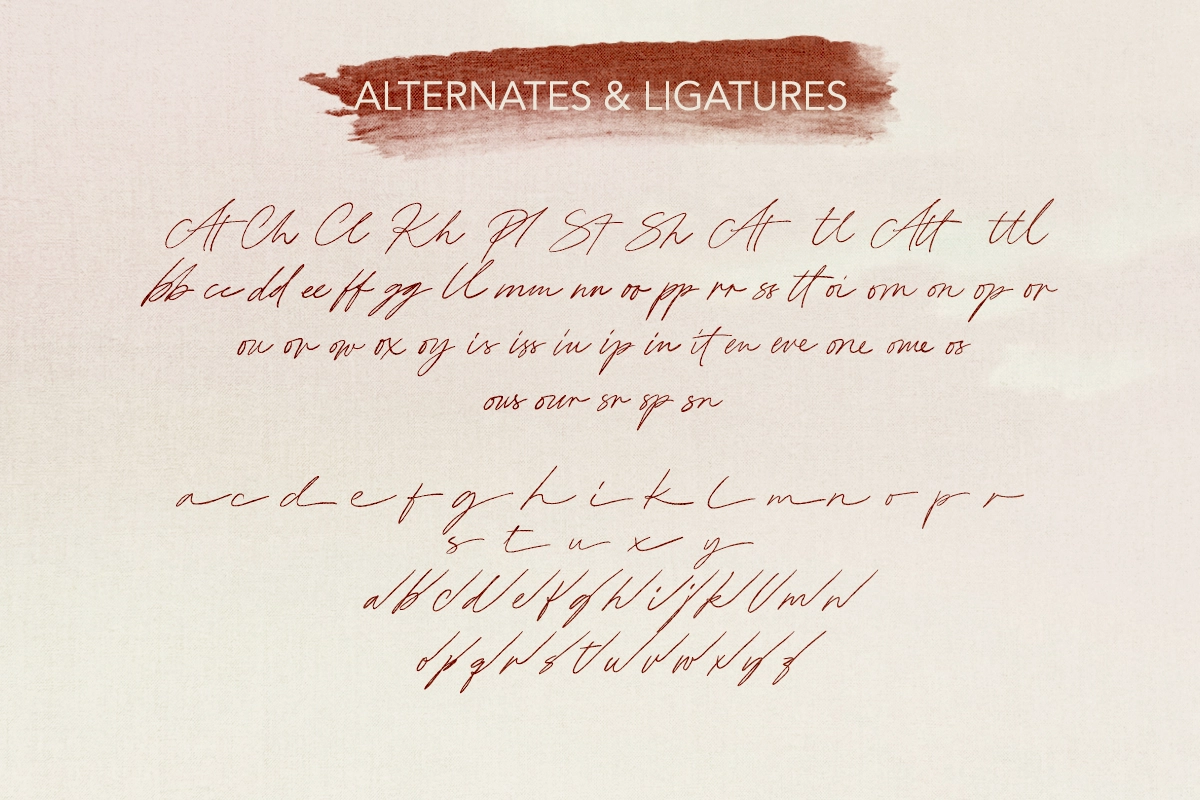 ALTERNATES & LIGATURES
At Ch Cl Kh Pl St Sh At tl Att ttl
bb cc dd ee ff gg ll mm nn oo pp rr ss tt oi om on op or
ou ov ow ox oy is iss iu ip in it en eve one ome os
ous our sr sp sn
a c d e f g h i k l m n o p r
s t u x y
a b c d e f g h i j k l m n
o p q r s t u v w x y z